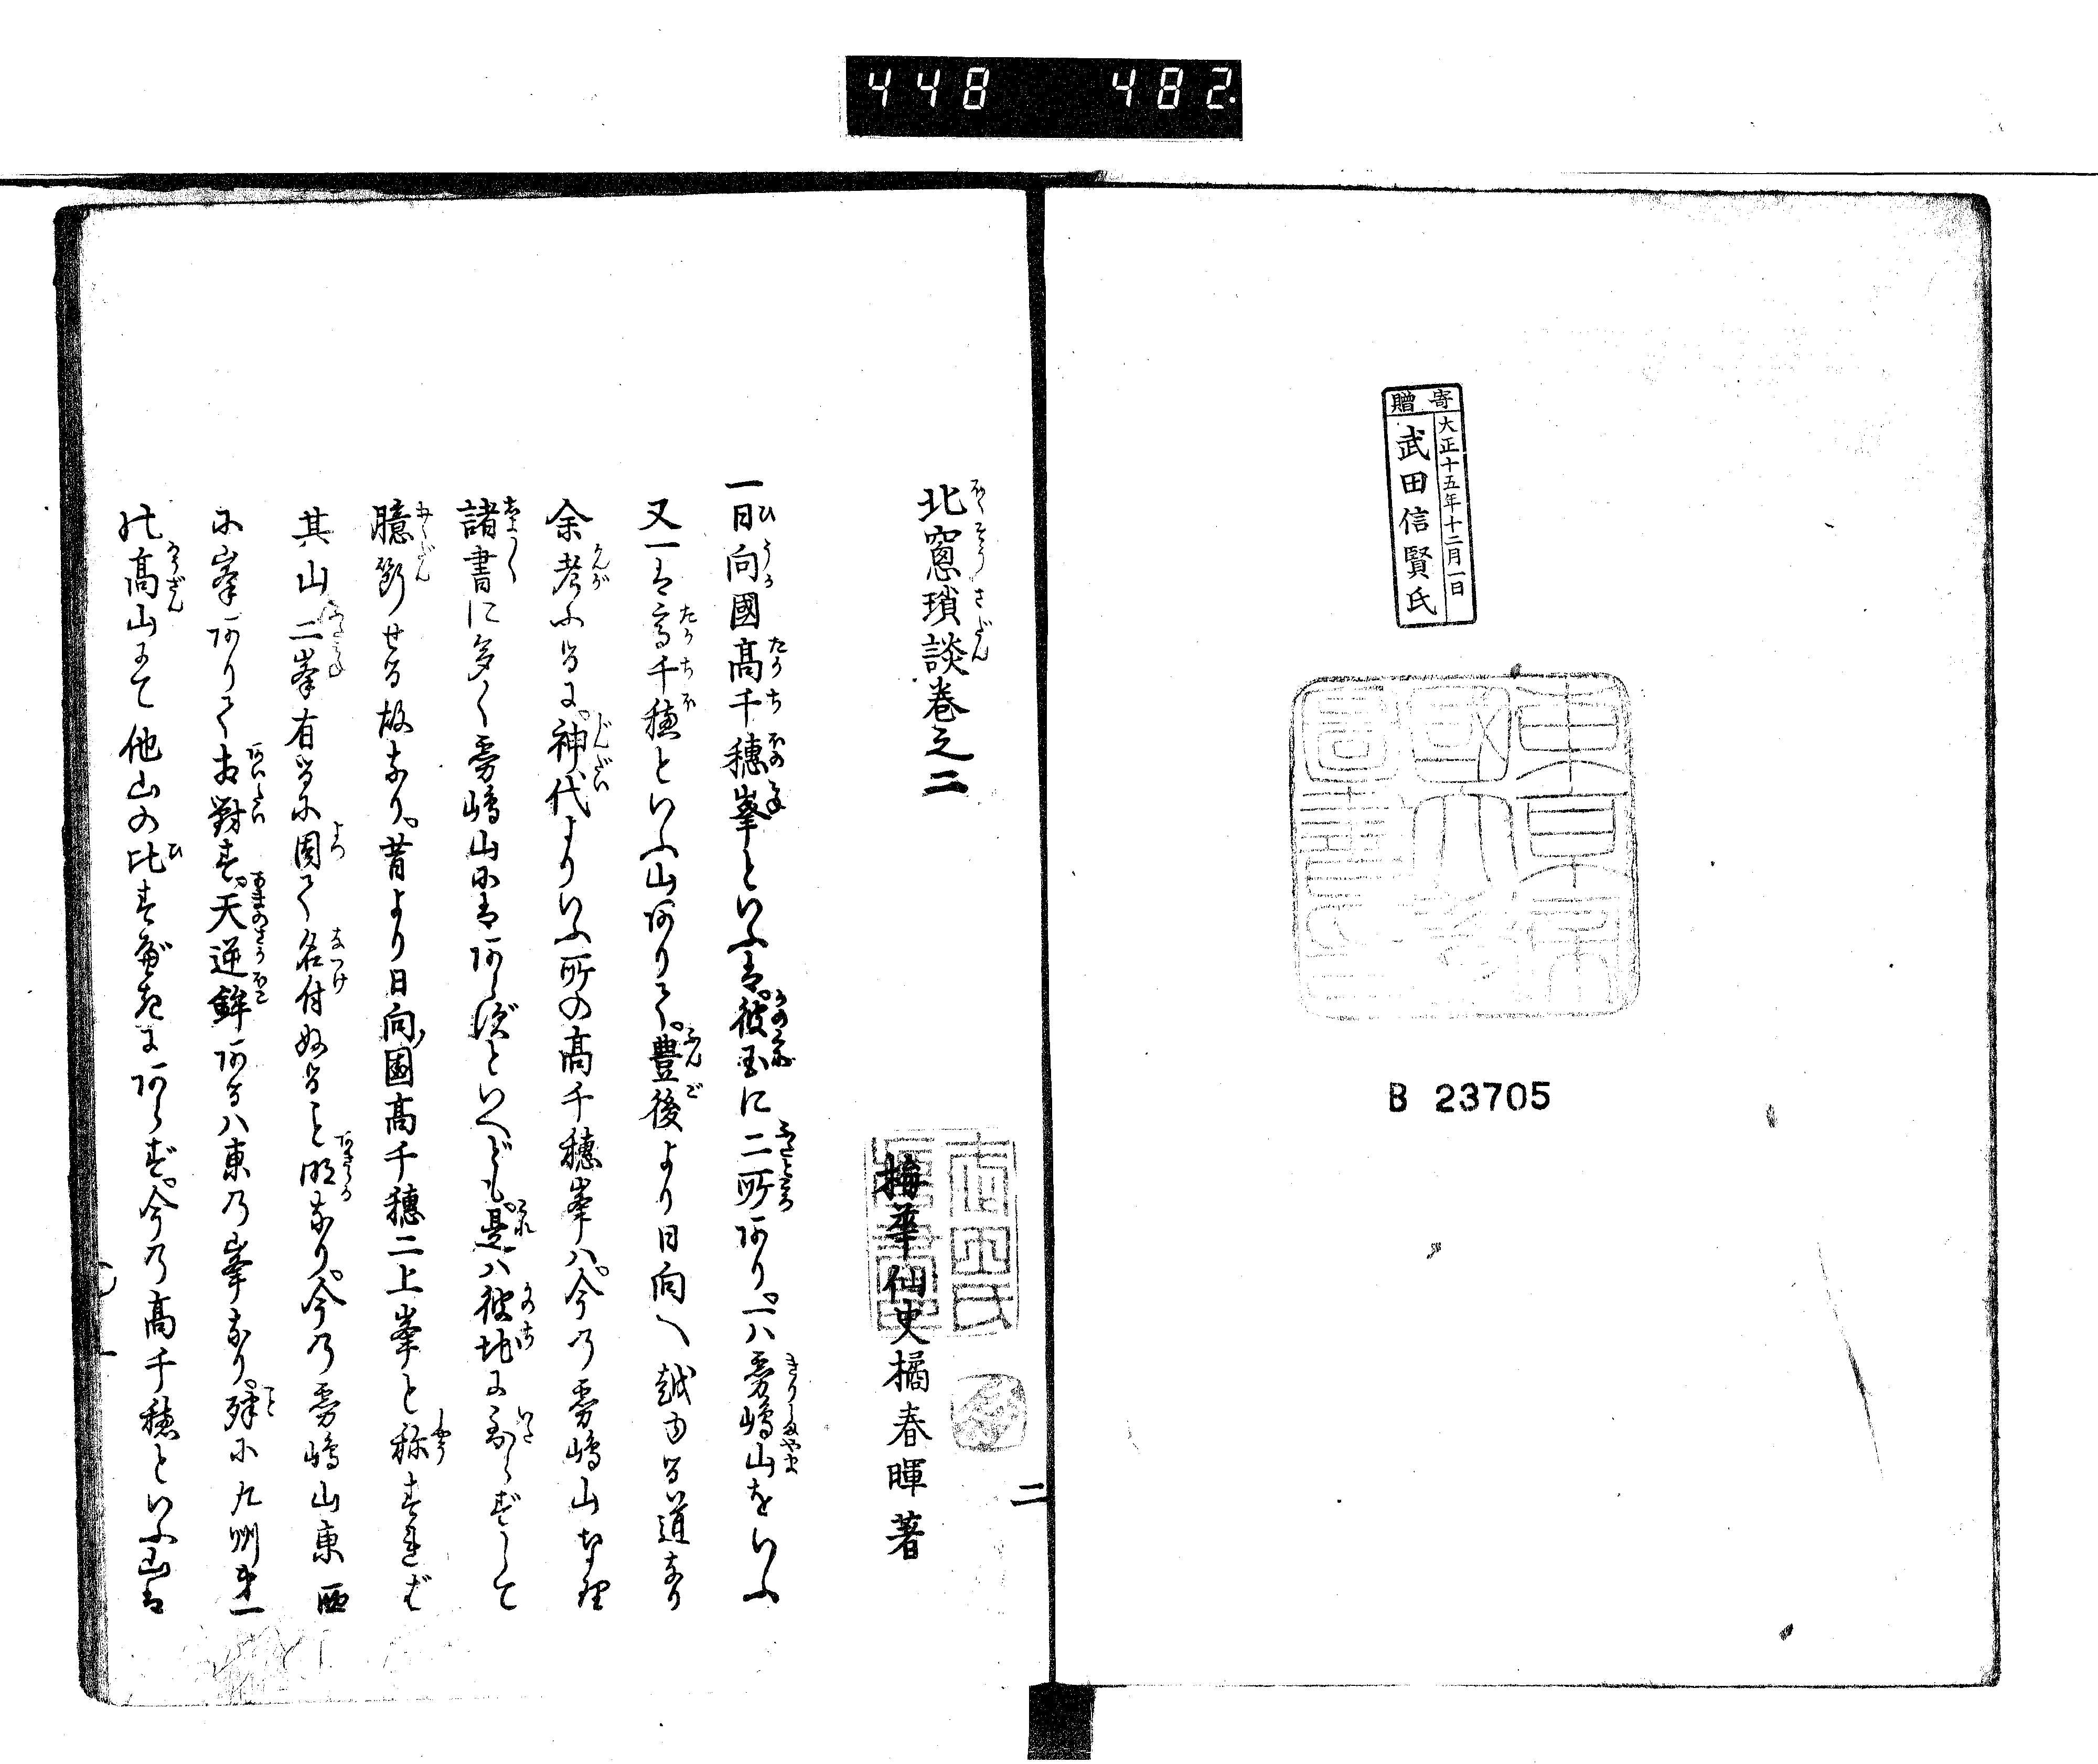 448 482
寄贈
大正十五年十二月一日
武田信賢氏
東京帝
国大学
図書印
B 23705
北窓瑣談巻之二
梅華仙史橘春暉著
二
一日向國高千穗峯といふは。彼国に二所あり。一ハ霧嶋山をいふ
又一は高千穂といふ山ありて。豊後より日向へ越ゆる道なり
余考ふるに。神代よりいふ所の高千穗峯ハ。今の霧嶋山なり
諸書に多く霧嶋山にはあらずといへども。是ハ彼地に到らずして
臆断せる故なり。昔より日向國高千穗二上峯と称すれば
其山二峯有るに因て名付ぬること明なり。今の霧嶋山東西
に峯ありて相對す。天逆鉾あるハ東の峯なり。殊に九州第一
の高山にて他山の比すべきにあらず。今の高千穂といふ山は